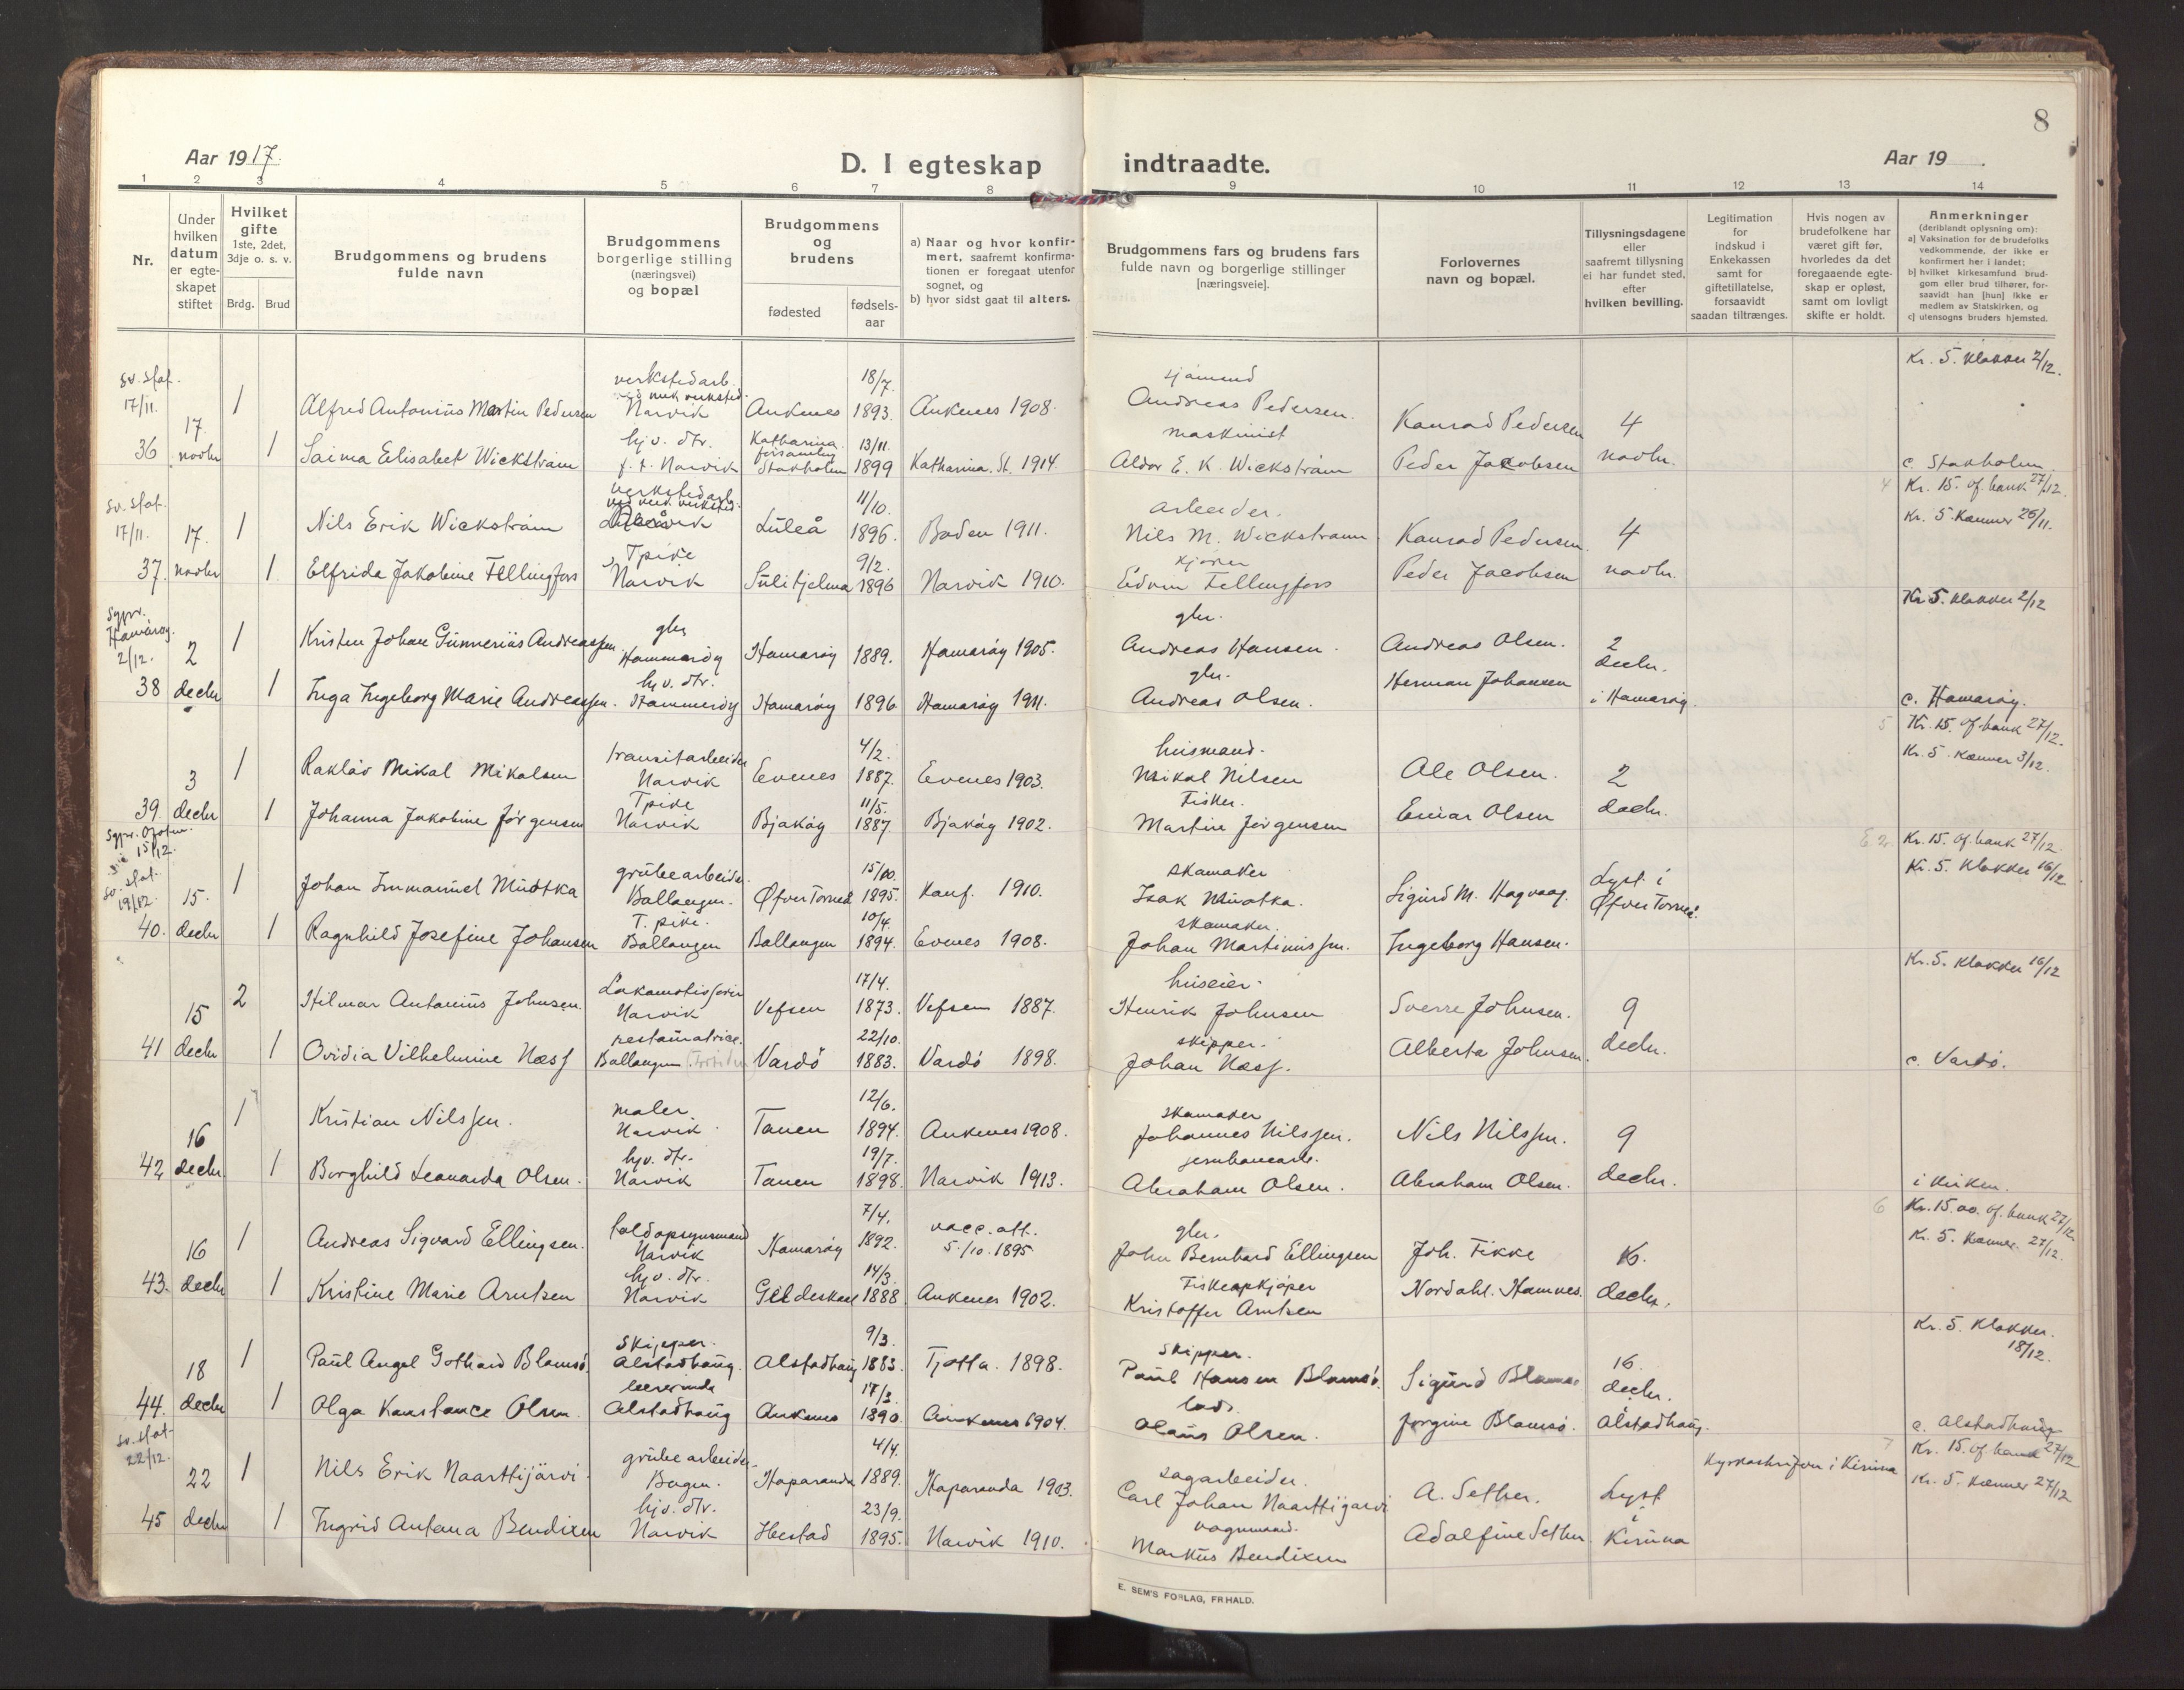 8
Aar 1917.
D. I egteskap indtraadte.
Aar 19 .
1 2 3 4 5 6 7 8 9 10 11 12 13 14
Nr.
Under hvilken datum er egteskapet stiftet
Hvilket gifte 1ste, 2det, 3dje o. s. v.
Brdg. Brud
Brudgommens og brudens fulde navn
Brudgommens borgerlige stilling (næringsvei) og bopæl
Brudgommens og brudens
fødested
fødselsaar
a) Naar og hvor konfirmert, saafremt konfirmationen er foregaat utenfor sognet, og
b) hvor sidst gaat til alters.
Brudgommens fars og brudens fars fulde navn og borgerlige stillinger [næringsveie].
Forlovernes navn og bopæl.
Tillysningsdagene eller saafremt tillysning ei har fundet sted, efter hvilken bevilling.
Legitimation for indskud i Enkekassen samt for giftetillatelse, forsaavidt saadan tiltrænges.
Hvis nogen av brudefolkene har været gift før, hvorledes da det foregaaende egteskap er opløst, samt om lovligt skifte er holdt.
Anmerkninger (deriblandt oplysning om):
a] Vaksination for de brudefolks vedkommende, der ikke er konfirmert her i landet;
b] hvilket kirkesamfund brudgom eller brud tilhører, forsaavidt han [hun] ikke er medlem av Statskirken, og
c] utensogns bruders hjemsted.
Kr. 5. Klokker 2/12.
sv. stat. 17/11.
verkstedarb. 18/7. sjömand
1 Alfred Antonius Martin Pedersen Narvik Ankenes 1893. Ankenes 1908. Andreas Pedersen. Konrad Pedersen 4
17. hj.v. dtr. Katharina forsamling 13/11. maskinist
36 novbr 1 Saima Elisabet Wickstrøm f. t. Narvik Stokholm 1899 Katharina. St. 1914. Aldor E. K. Wickstrøm Peder Jacobsen novbr. c. Stokholm.
4 Kr. 15. of. bank 27/12.
sv. stat. 17/11. verkstedarb. 11/10. arbeider. Kr. 5. Kæmner 25/11.
17. 1 Nils Erik Wickstrøm Luleå 1896. Boden 1911. Nils M. Wickstrøm Konrad Pedersen. 4
Tpike 9/2. kjører
37. novbr 1 Elfrida Jakobine Fellingfors Narvik Sulitjelma 1896 Narvik 1910. Edvin Fellingfors Peder Jacobsen novbr.
Kr. 5. Klokker 2/12
sgpr. Hamarøy. 2/12. gbr. gbr.
2 1 Kristen Johan Gunnerius Andreassen Hammerøy Hamarøy 1889. Hamarøy 1905. Andreas Hansen. Andreas Olsen. 2
hj.v. dtr. gbr. decbr.
38 decbr 1 Inga Ingeborg Marie Andreassen. Hammerøy Hamarøy 1896 Hamarøy 1911. Andreas Olsen. Herman Johansen i Hamarøy. c. Hamarøy.
5 Kr. 15. of. bank 27/12.
transitarbeider 4/2. husmand. Kr. 5. Kæmner 3/12.
3 1 Rakløv Mikal Mikalsen Narvik Evenes 1887. Evenes 1903. Mikal Nilsen Ole Olsen. 2
Tpike 11/5. Fisker.
39. decbr 1 Johanna Jakobine Jørgensen Narvik Bjakøy 1887 Bjakøy 1902. Martin Jørgensen Einar Olsen decbr.
sgpr. Ofoten 15/12. Kr. 15. of. bank 27/12.
sv. stat. 19/12. grubearbeider 15/10. skomaker Lyst i Kr. 5. Klokker 16/12
15. 1 Johan Immanuel Muotka Ballangen. Øfver Torneå 1895. Konf. 1910. Isak Muotka. Sigurd M. Hagvaag. Øfver Torneå.
T. pike. 10/4. skomaker.
40. decbr 1 Ragnhild Josefine Johansen Ballangen Ballangen 1894. Evenes 1908. Johan Martinussen. Ingeborg Hansen.
Kr. 5. Klokker 16/12
Lokomotivfører 17/4. huseier.
15 2 Hilmar Antonius Johnsen. Narvik Vefsen 1873. Vefsen 1887. Henrik Johnsen Sverre Johnsen. 9
restauratrice. 22/10. skipper.
41 decbr 1 Ovidia Vilhelmine Næss Ballangen Vardø 1883. Vardø 1898. Johan Næss. Alberta Johnsen. decbr. c. Vardø.
maler 12/6. skomaker
16 1 Kristian Nilssen. Narvik. Tanen 1894. Ankenes 1908. Johannes Nilssen. Nils Nilssen. 9
hj.v. dtr. 19/7. jernbanearb.
42 decbr. 1 Borghild Leonarda Olsen. Narvik Tanen 1898. Narvik 1913. Abraham Olsen. Abraham Olsen. decbr. i kirken.
6 Kr. 15.00. of. bank 27/12
toldopsynsmand 7/4. vacc. att. gbr. Kr. 5. Kæmner. 27/12.
16 1 Andreas Sigvard Ellingsen. Narvik Hamarøy 1892. 5./10. 1895 John Bernhard Ellingsen Joh. Fikke 16.
hj.v. dtr. 14/3. Fiskeopkjøper
43. decbr 1 Kristine Marie Arntsen Narvik Gildeskaal 1888 Ankenes 1902. Kristoffer Arntsen Nordahl. Hamnes. decbr.
Kr. 5. Klokker. 18/12.
Skipper. 9/3. Skipper.
18 1 Paul Angel Gothard Blomsø. Alstadhaug. Alstadhaug 1883. Tjøtta. 1898. Paul Hansen Blomsø. Sigurd Blomsø 16.
lærerinde 17/3. lods. decbr. i
44. decbr 1 Olga Konstance Olsen. Alstadhaug Ankenes 1890. Ankenes 1904. Olaus Olsen. Jørgine Blomsø. Alstadhaug. c. Alstadhaug
7 Kr. 15. of. bank 27/12
sv. stat. 22/12. grubearbeider 4/4. sagarbeider. Kyrkoskrifven i Kiruna Kr. 5. Kæmner 27/12
22 1 Nils Erik Naarttijärvi. Bogen. Haparanda 1889. Haparanda 1903. Carl Johan Naarttijarvi A. Sether. Lyst
hj.v. dtr. 23/9. vognmand. i
45 decbr 1 Ingrid Antona Bendixen Narvik Ibestad 1895. Narvik 1910. Markus Bendixen Adolfine Sether. Kiruna
E. SEM'S FORLAG, FR.HALD.